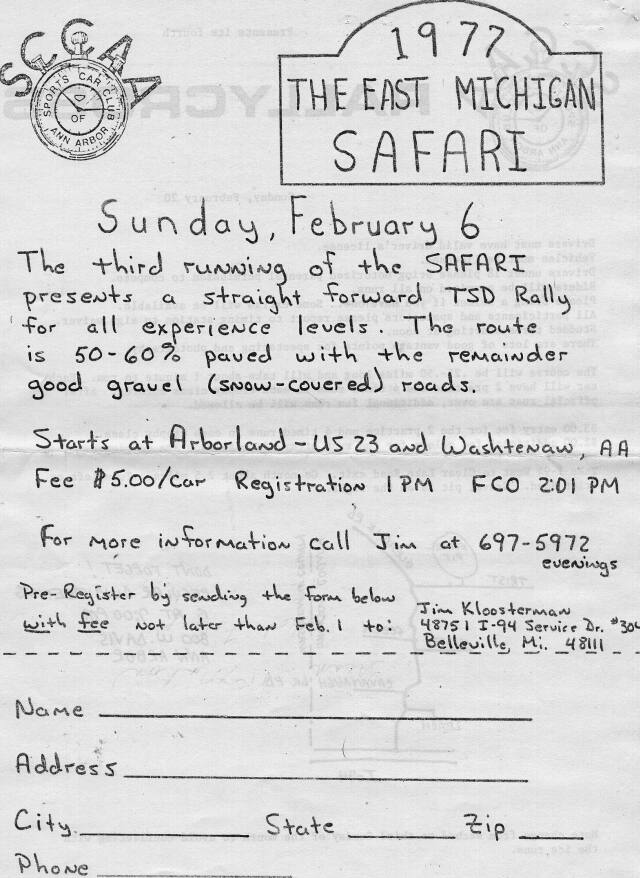 SCCAA
SPORTS CAR CLUB
OF
ANN ARBOR
1977
THE EAST MICHIGAN
SAFARI
Sunday, February 6
The third running of the SAFARI
presents a straight forward TSD Rally
for all experience levels. The route
is 50-60% paved with the remainder
good gravel (snow-covered) roads.
Starts at Arborland - US 23 and Washtenaw, AA
Fee $5.00/Car Registration 1 PM FCO 2:01 PM
For more information call Jim at 697-5972
evenings
Pre-Register by sending the form below
with fee not later than Feb. 1 to:
Jim Kloosterman
48751 I-94 Service Dr. #304
Belleville, Mi. 48111
Name
Address
City State Zip
Phone